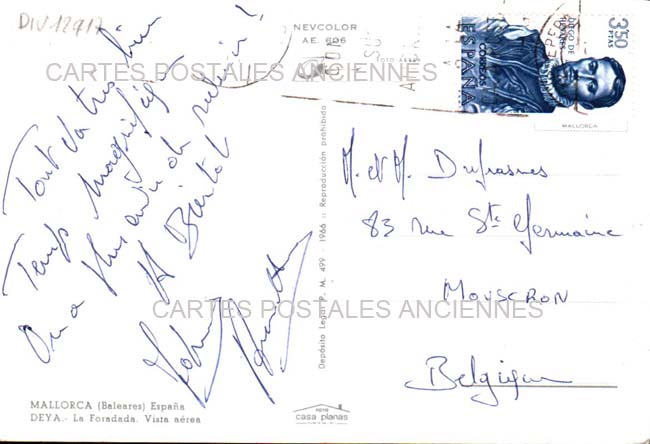 DIV 12917
NEVCOLOR
AE. 606
FOTO AEREA
CARTES POSTALES ANCIENNES
3'50
PTAS
ESPAÑA
CORREOS
DIEGO DE
MALLORCA
Tout va très bien
Temps magnifique
On a plus envie de revenir !
A Bientôt
Johnny
M. et M. Dufrasnes
83 rue Ste Germaine
Mouscron
Belgique
CARTES POSTALES ANCIENNES
Depósito Legal P. M. 499 - 1966 :: Reproducción prohibida
MALLORCA (Baleares) España
DEYA.- La Foradada. Vista aérea
FOTO
casa planas